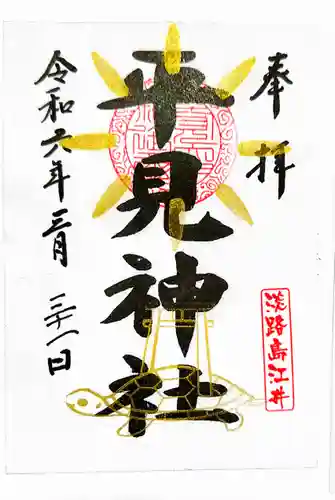 奉拝
平見神社
令和六年三月二十一日
淡路島江井